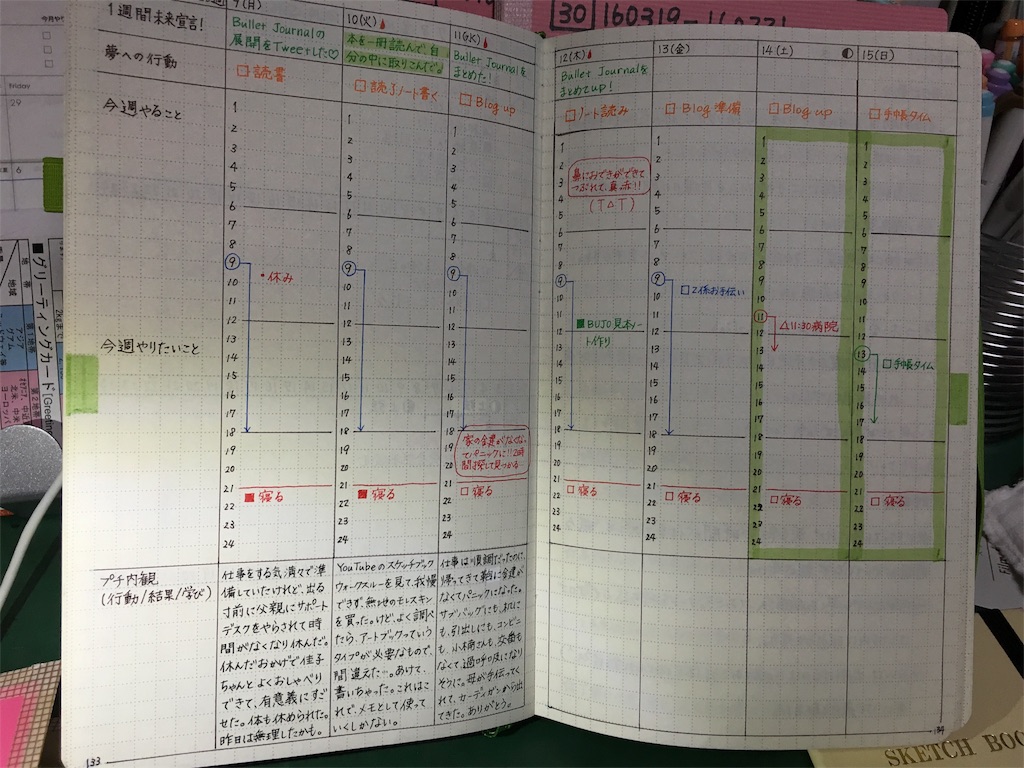 30 160319-160331
1週間未来宣言!
9(月)
10(火)
11(水)
12(木)
13(金)
14(土)
15(日)
夢への行動
Bullet Journalの
展開をTweetした♡
本を一冊読んで、自
分の中に取りこんだぞ。
Bullet Journalを
まとめた!
Bullet Journalを
まとめてup!
今週やること
□読書
□読了ノート書く
□Blog up
□ノート読み
□Blog準備
□Blog up
□手帳タイム
1
2
3
4
5
6
7
8
9
10
11
12
13
14
15
16
17
18
19
20
21
22
23
24
今週やりたいこと
・休み
鼻におできができて
つぶれて、鼻、赤!!
(T△T)
■BUJO見本ノー
ト作り
□2係お手伝い
△11:30病院
□手帳タイム
家の金庫がなくなっ
てパニックに!!2時
間探して見つかる
■寝る
■寝る
□寝る
□寝る
□寝る
□寝る
□寝る
プチ内観
(行動/結果/学び)
仕事をする気満々で準
備していたけれど、出る
寸前に父親にサポート
デスクをやらされて時
間がなくなり休んだ。
休んだおかげで佳子
ちゃんとよくおしゃべり
できて、有意義にすご
せた。体も休められた。
昨日は無理したかも。
YouTubeのスケッチブック
ウォークスルーを見て、我慢
できず、無地のモレスキン
を買った。けど、よく調べ
たら、アートブックっていう
タイプが必要なもので、
間違えた…。あけて、
書いちゃった。これはこ
れで、メモとして使って
いくしかない。
仕事は順調だったのに、
帰ってきて鞄に
なくてパニックになった。
サブバッグにも、おれにも
も、引出しにも、コンビニ
も、小桶さんも、交番も
なくて、過呼吸になり
そうに。母が手伝ってく
れて、カーディガンから出
てきた。ありがとう。
133
134
Friday
29
6
■グリーティングカード [Greeti
地域
SKETCH BOO